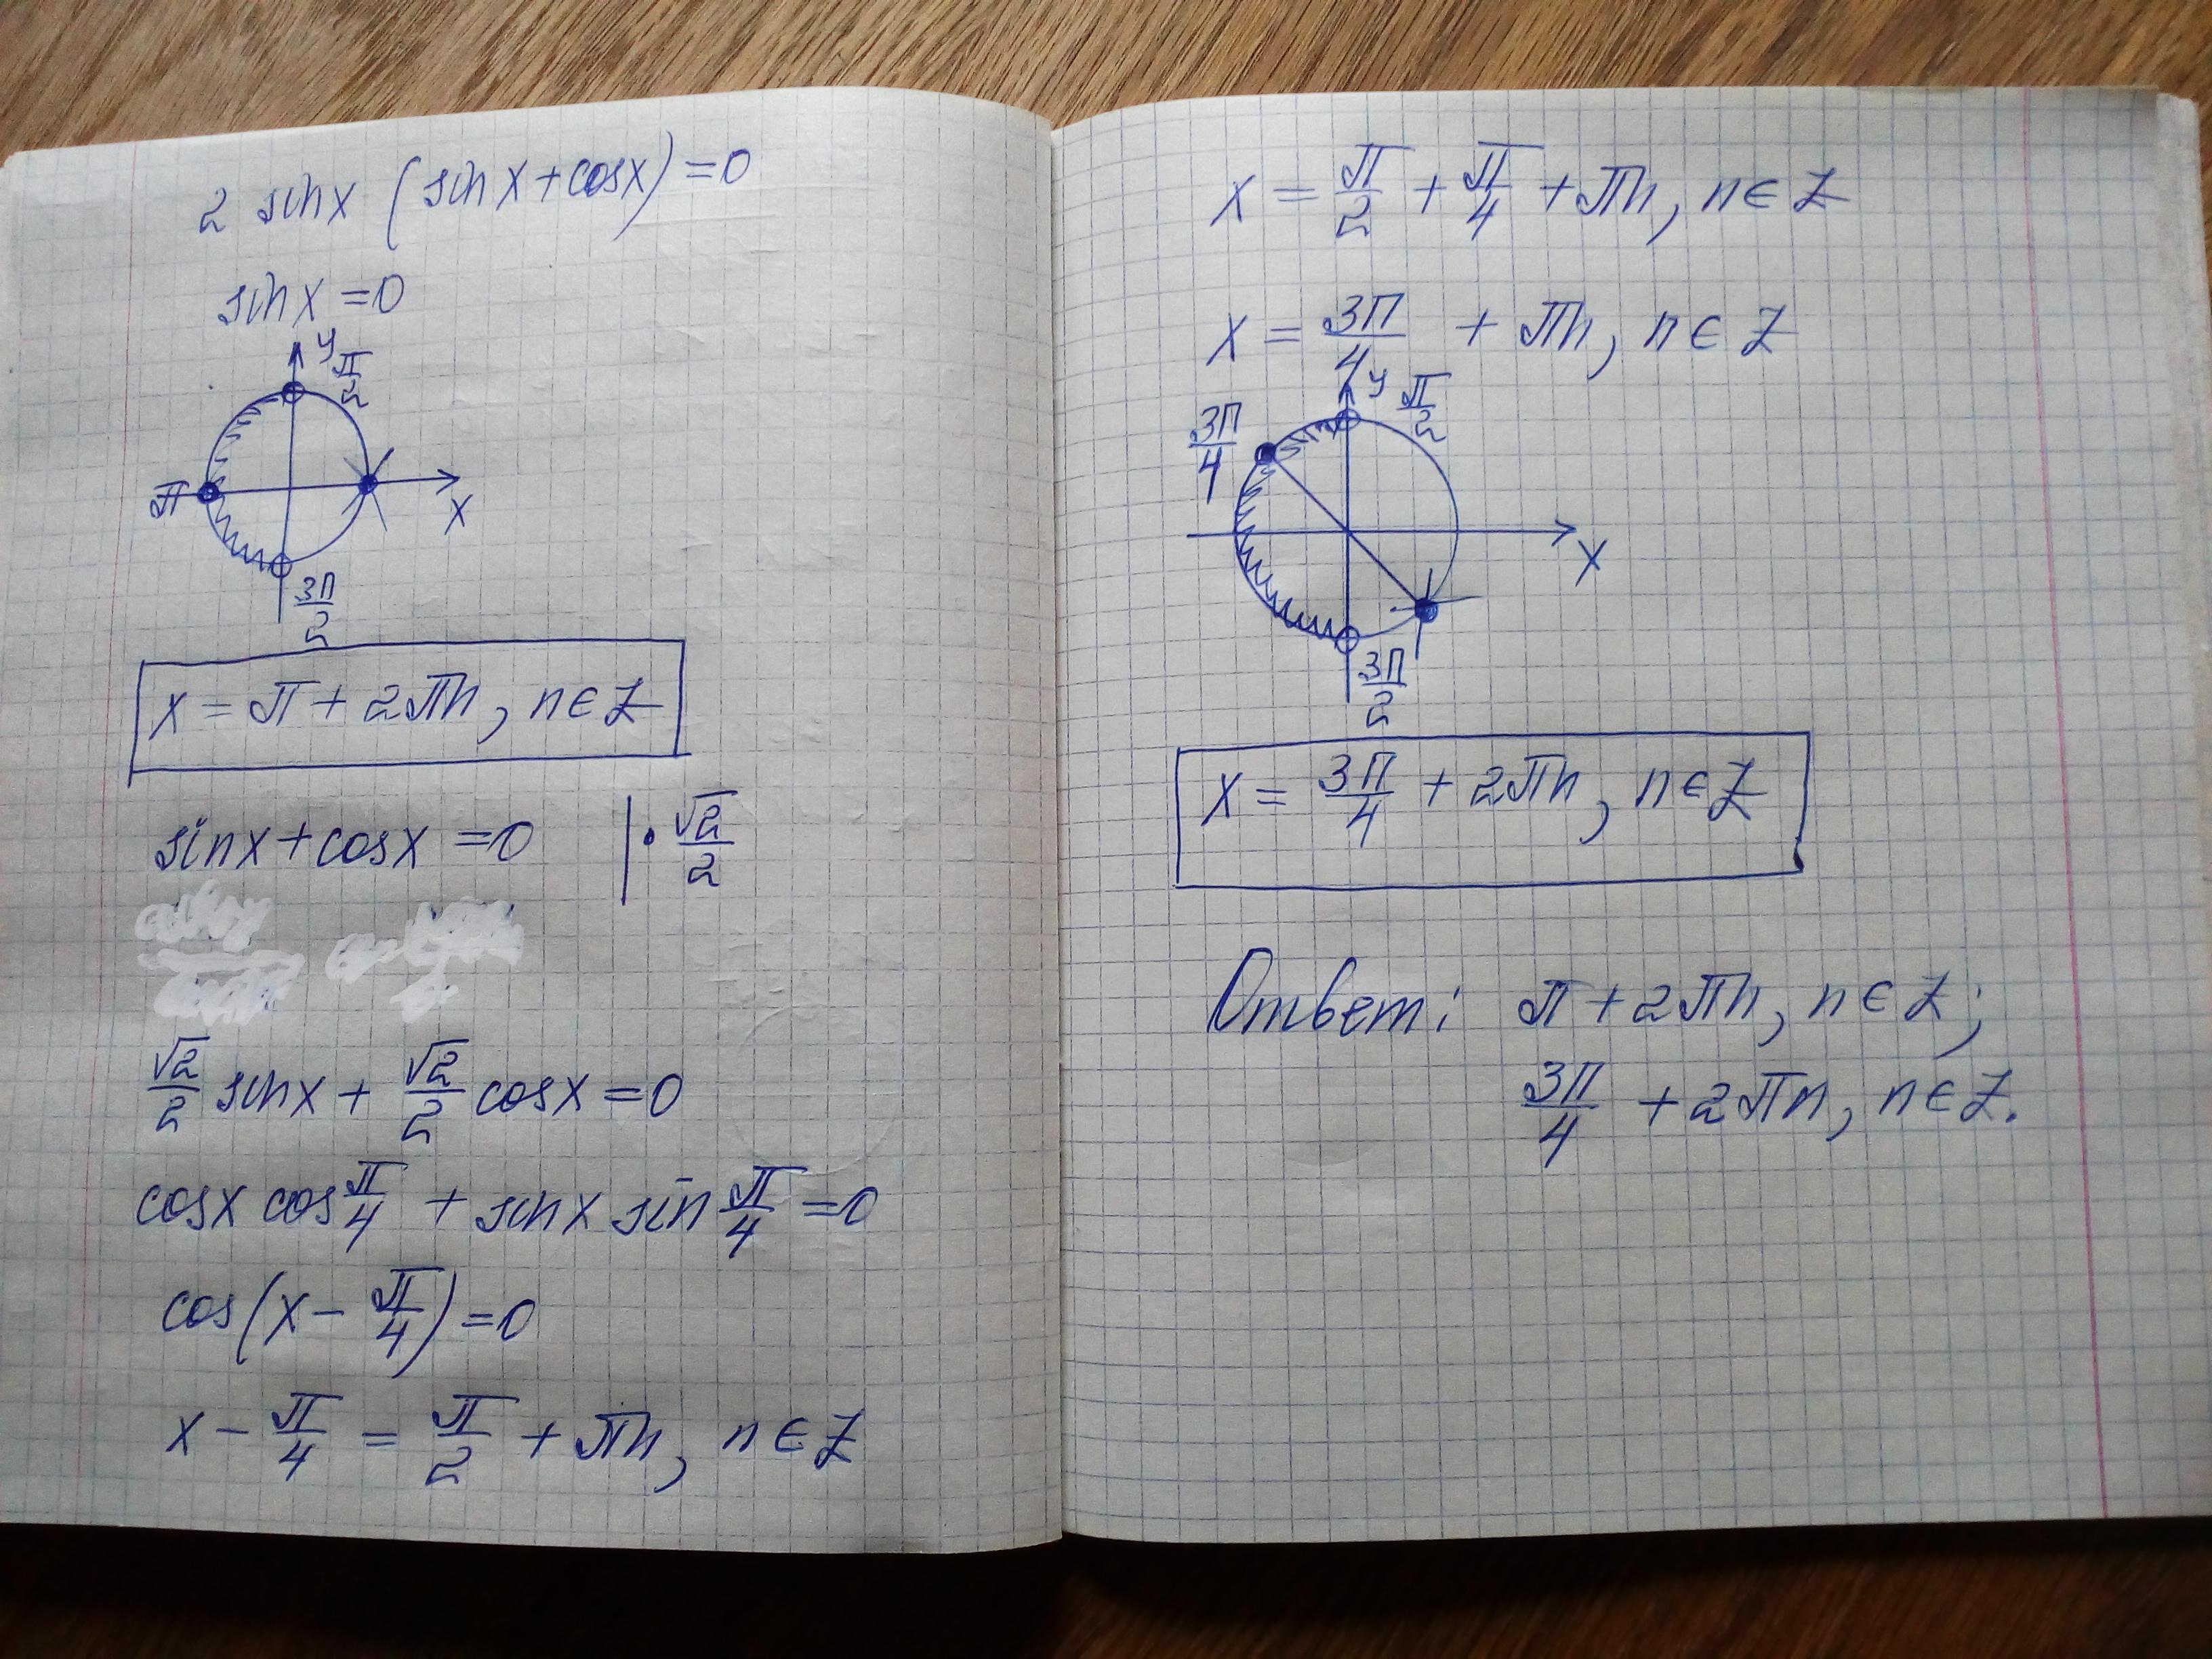 2 sin x (sin x + cos x) = 0
sin x = 0
y π/2
π x
3π/2
x = π + 2πn, n ∈ Z
sin x + cos x = 0 | · √2/2
√2/2 sin x + √2/2 cos x = 0
cos x cos π/4 + sin x sin π/4 = 0
cos(x - π/4) = 0
x - π/4 = π/2 + πn, n ∈ Z
x = π/2 + π/4 + πn, n ∈ Z
x = 3π/4 + πn, n ∈ Z
y π/2
3π/4
x
3π/2
x = 3π/4 + 2πn, n ∈ Z
Ответ: π + 2πn, n ∈ Z;
3π/4 + 2πn, n ∈ Z.